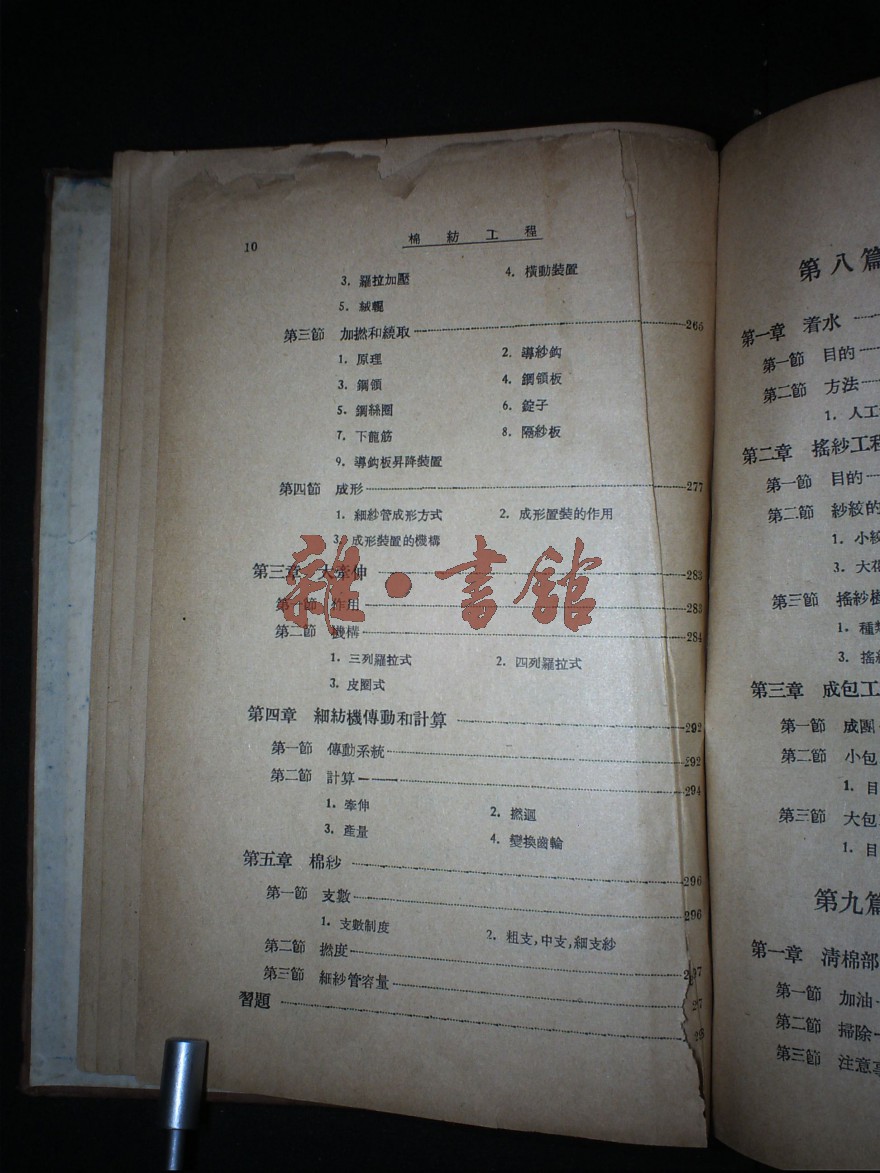 10
棉紡工程
3. 羅拉加壓 4. 橫動裝置
5. 絨輥
第三節 加撚和繞取 266
1. 原理 2. 導紗鈎
3. 鋼領 4. 鋼領板
5. 鋼絲圈 6. 錠子
7. 下龍筋 8. 隔紗板
9. 導鈎板昇降裝置
第四節 成形 277
1. 細紗管成形方式 2. 成形置裝的作用
3. 成形裝置的機構
第三章 大牽伸 283
第一節 作用 283
第二節 機構 284
1. 三列羅拉式 2. 四列羅拉式
3. 皮圈式
第四章 細紡機傳動和計算 292
第一節 傳動系統 292
第二節 計算 294
1. 牽伸 2. 撚迴
3. 產量 4. 變換齒輪
第五章 棉紗 296
第一節 支數 296
1. 支數制度 2. 粗支,中支,細支紗
第二節 撚度
第三節 細紗管容量
習題
雜·書館
第八篇
第一章 着水
第一節 目的
第二節 方法
1. 人工
第二章 搖紗工程
第一節 目的
第二節 紗絞的
1. 小絞
3. 大花
第三節 搖紗機
1. 種類
3. 搖紗
第三章 成包工
第一節 成團
第二節 小包
1. 目
第三節 大包
1. 目
第九篇
第一章 清棉部
第一節 加油
第二節 掃除
第三節 注意事